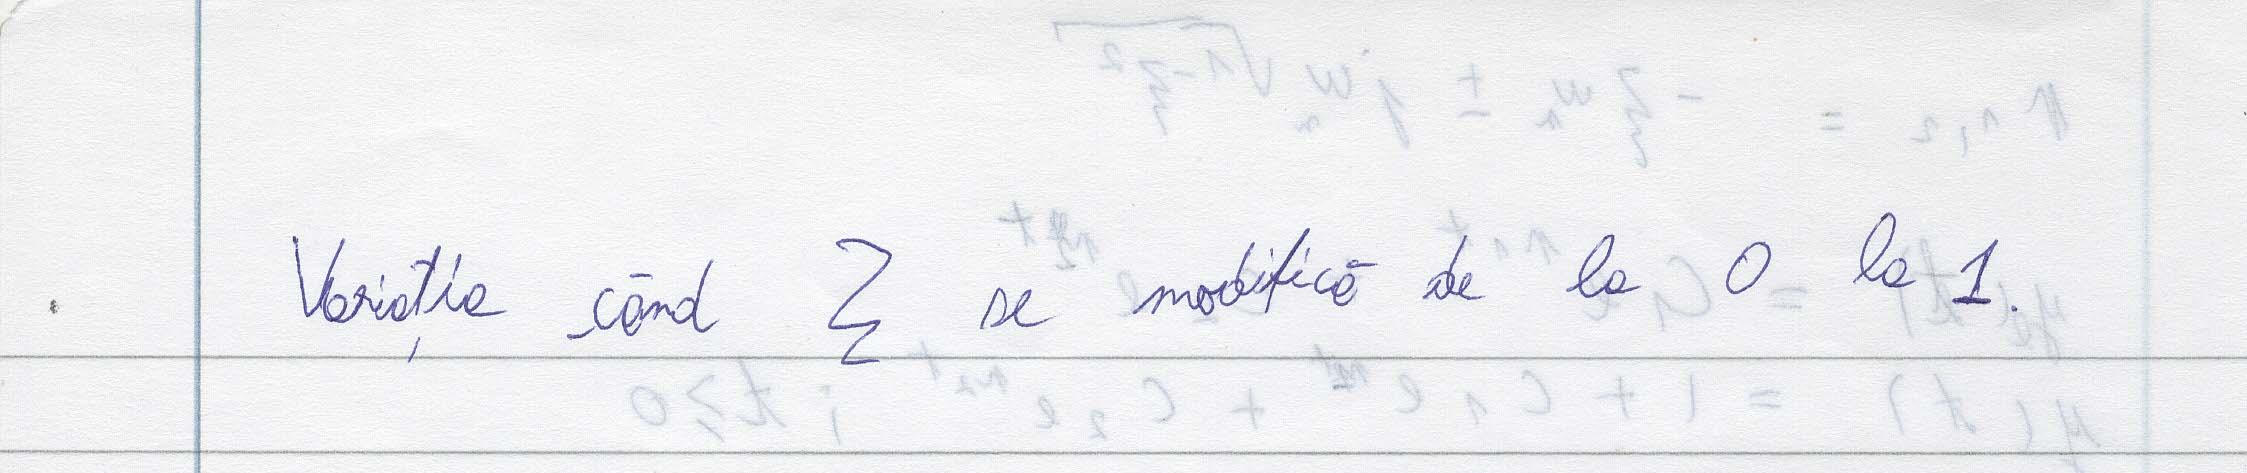 Variația când ξ se modifică de la 0 la 1.